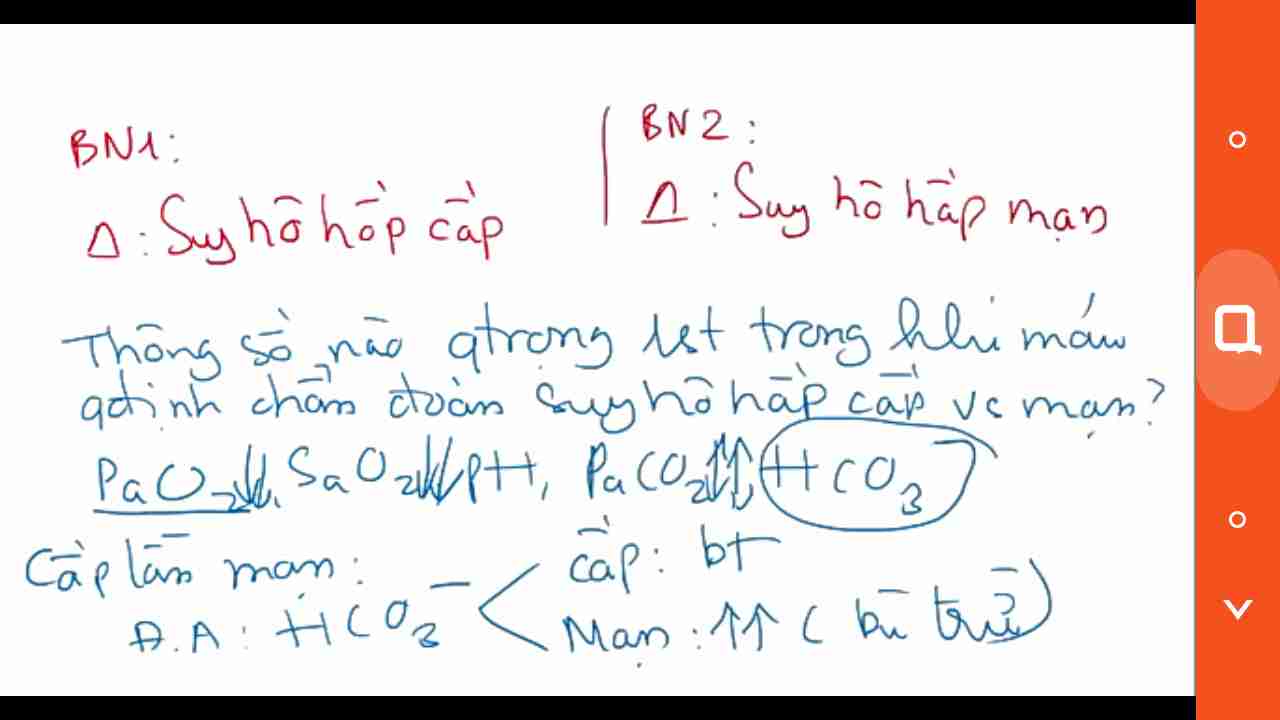 BN1:
Δ: Suy hô hấp cấp
BN2:
Δ: Suy hô hấp mạn
Thông số nào qtrọng 1st trong khí máu
qđịnh chẩn đoán suy hô hấp cấp vs mạn?
PaO2↓↓, SaO2↓↓, pH, PaCO2↑↑, HCO3
Cấp lẫn mạn:
cấp: bt
Đ.A: HCO3⁻ <
Mạn: ↑↑ (bù trừ)